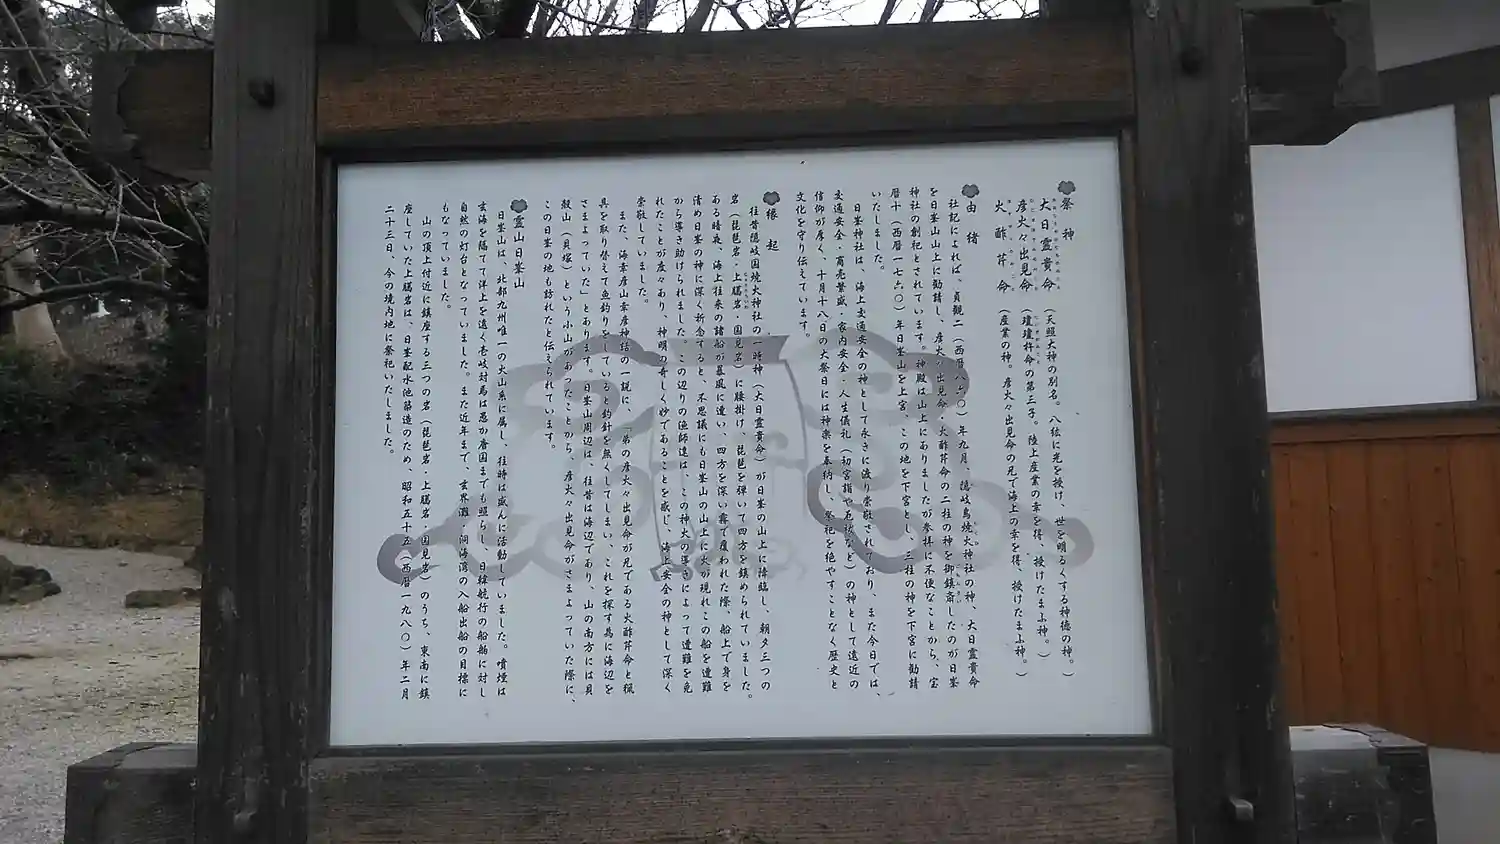 祭神
大日霊貴命（天照大神の別名。八紘に光を授け、世を明るくする神徳の神。）
彦火々出見命（瓊瓊杵命の第三子。陸上産業の幸を得、授けたまふ神。）
火酢芹命（産業の神。彦火々出見命の兄で海上の幸を得、授けたまふ神。）
由緒
社記によれば、貞観二（西暦八六〇）年九月、隠岐島焼火神社の神、大日霊貴命
を日峯山山上に勧請し、彦火々出見命、火酢芹命の二柱の神を御鎮斎したのが日峯
神社の創祀とされています。神殿は山上にありましたが参拝に不便なことから、宝
暦十（西暦一七六〇）年日峯山を上宮、この地を下宮とし、三柱の神を下宮に勧請
いたしました。
日峯神社は、海上交通安全の神として永きに渡り崇敬されており、また今日では、
交通安全・商売繁盛・家内安全・人生儀礼（初宮詣や厄祓など）の神として遠近の
信仰が厚く、十月十八日の大祭日には神楽を奉納し、祭祀を絶やすことなく歴史と
文化を守り伝えています。
縁起
往昔隠岐国焼火神社の一時神（大日霊貴命）が日峯の山上に降臨し、朝夕三つの
岩（琵琶岩・上臈岩・国見岩）に腰掛け、琵琶を弾いて四方を鎮められていました。
ある暗夜、海上往来の諸船が暴風に遭い、四方を深い霧で覆われた際、船上で身を
清め日峯の神に深く祈念すると、不思議にも日峯山の山上に火が現れこの船を遭難
から導き助けられました。この辺りの漁師達は、この神火の導きによって遭難を免
れたことが度々あり、神明の奇しく妙であることを感じ、海上安全の神として深く
崇敬していました。
また、海幸彦山幸彦神話の一説に、「弟の彦火々出見命が兄である火酢芹命と猟
具を取り替えて魚釣りをしていると釣針を無くしてしまい、これを探す為に海辺を
さまよっていた」とあります。日峯山周辺は、往昔は海辺であり、山の南方には貝
殻山（貝塚）という小山があったことから、彦火々出見命がさまよっていた際に、
この日峯の地も訪れたと伝えられています。
霊山日峯山
日峯山は、北部九州唯一の火山系に属し、往時は盛んに活動していました。噴煙は
玄海を隔てて洋上を遠く壱岐対馬は愚か唐国までも照らし、日韓航行の船舶に対し
自然の灯台となっていました。また近年まで、玄界灘、洞海湾の入船出船の目標に
もなっていました。
山の頂上付近に鎮座する三つの岩（琵琶岩・上臈岩・国見岩）のうち、東南に鎮
座していた上臈岩は、日峯配水池築造のため、昭和五十五（西暦一九八〇）年二月
二十三日、今の境内地に祭祀いたしました。